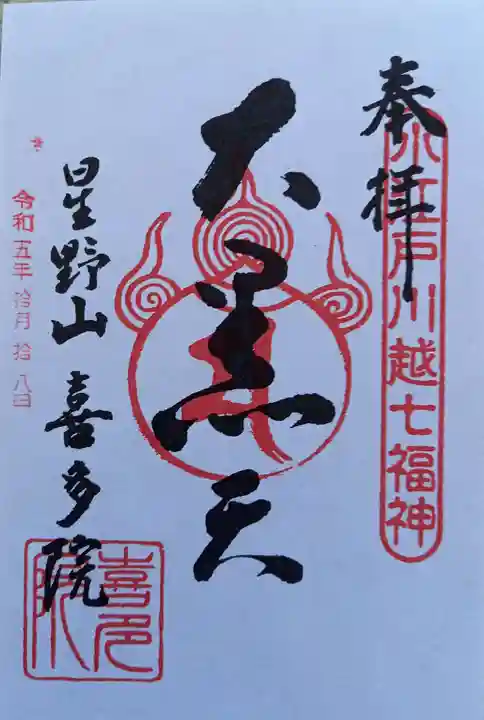 奉拝
小江戸川越七福神
大黒天
星野山 喜多院
喜多院
令和五年 拾月 拾八日